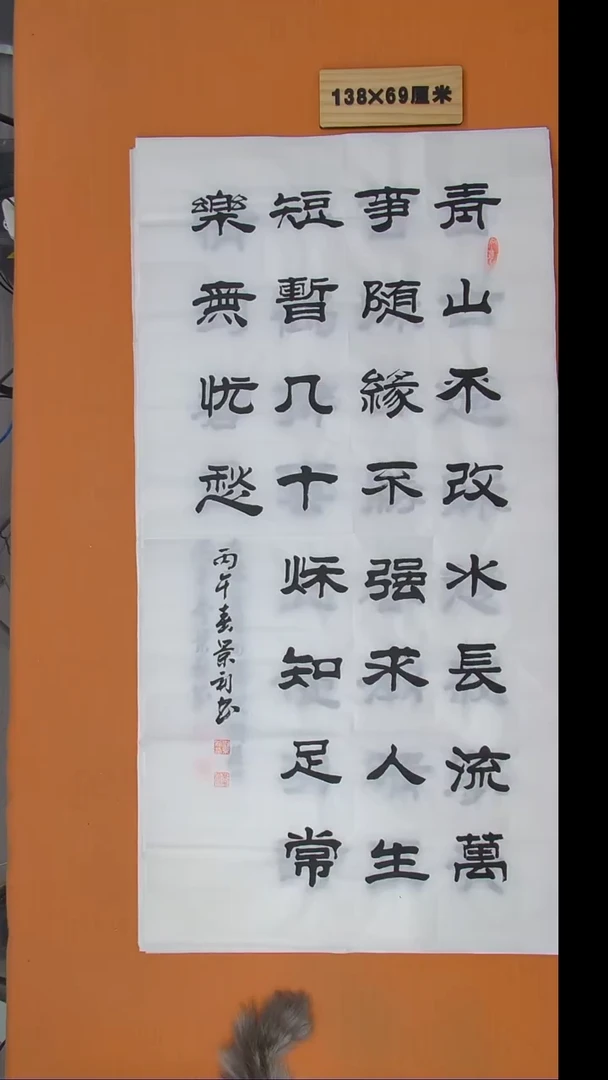 138×69厘米
青山不改水長流萬
事随緣不强求人生
短暫几十秌知足常
樂無忧愁
丙午春景利书